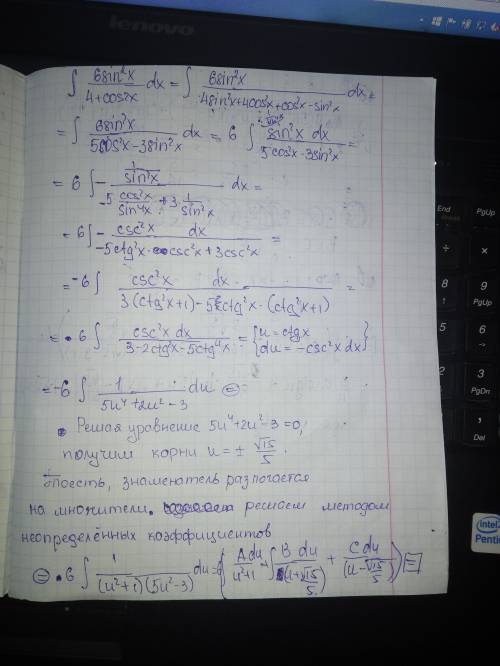 lenovo
∫ 6sin²x / (4+cos2x) dx = ∫ 6sin²x / (4sin²x+4cos²x+cos²x−sin²x) dx =
= ∫ 6sin²x / (5cos²x−3sin²x) dx = 6 ∫ sin²x dx / (5cos²x−3sin²x) =
= 6 ∫ − (1/sin²x) / (−5 cos²x/sin⁴x + 3·1/sin²x) dx =
= 6 ∫ − csc²x dx / (−5ctg²x·csc²x+3csc²x) =
= −6 ∫ csc²x dx / (3(ctg²x+1)−5ctg²x·(ctg²x+1)) =
= 6 ∫ csc²x dx / (3−2ctg²x−5ctg⁴x) = {u=ctgx
du=−csc²x dx}
= −6 ∫ 1 / (5u⁴+2u²−3) du =
Решая уравнение 5u⁴+2u²−3=0,
получим корни u=± √15/5.
То есть, знаменатель разлогается
на множители. решаем методом
неопределённых коэффициентов
= 6 ∫ 1 / ((u²+1)(5u²−3)) du = 6 ( A du / (u²+1) + ∫ B du / (u+√15/5) + C du / (u−√15/5) ) =
End
PgUp
÷
×
8
9
PgUp
5
6
→
2
3
PgDn
Del
intel
Pentiu